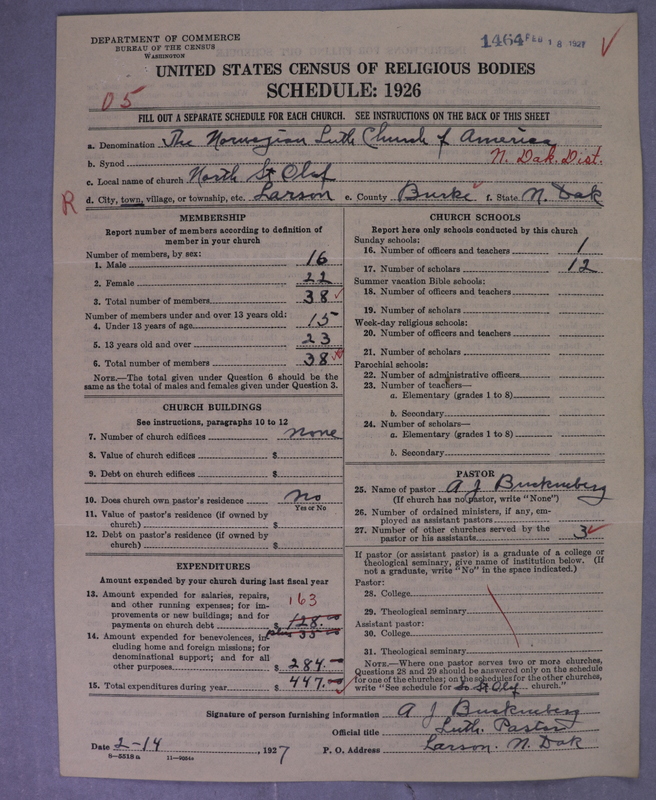 DEPARTMENT OF COMMERCE
BUREAU OF THE CENSUS
WASHINGTON
1464 FEB 18 1927
UNITED STATES CENSUS OF RELIGIOUS BODIES
SCHEDULE: 1926
05
FILL OUT A SEPARATE SCHEDULE FOR EACH CHURCH. SEE INSTRUCTIONS ON THE BACK OF THIS SHEET
a. Denomination The Norwegian Luth Church of America
b. Synod N. Dak. Dist.
c. Local name of church North St Olaf
R d. City, town, village, or township, etc. Larson e. County Burke f. State N. Dak
MEMBERSHIP
Report number of members according to definition of member in your church
Number of members, by sex:
1. Male 16
2. Female 22
3. Total number of members 38
Number of members under and over 13 years old:
4. Under 13 years of age 15
5. 13 years old and over 23
6. Total number of members 38
NOTE.—The total given under Question 6 should be the
same as the total of males and females given under Question 3.
CHURCH BUILDINGS
See instructions, paragraphs 10 to 12
7. Number of church edifices none
8. Value of church edifices $
9. Debt on church edifices $
10. Does church own pastor's residence no
Yes or No
11. Value of pastor's residence (if owned by
church) $
12. Debt on pastor's residence (if owned by
church) $
EXPENDITURES
Amount expended by your church during last fiscal year
13. Amount expended for salaries, repairs,
and other running expenses; for im-
provements or new buildings; and for
payments on church debt $ 163
128.00
plus 35.00
14. Amount expended for benevolences, in-
cluding home and foreign missions; for
denominational support; and for all
other purposes $ 284.00
15. Total expenditures during year $ 447.00
CHURCH SCHOOLS
Report here only schools conducted by this church
Sunday schools:
16. Number of officers and teachers 1
17. Number of scholars 12
Summer vacation Bible schools:
18. Number of officers and teachers
19. Number of scholars
Week-day religious schools:
20. Number of officers and teachers
21. Number of scholars
Parochial schools:
22. Number of administrative officers
23. Number of teachers—
a. Elementary (grades 1 to 8)
b. Secondary
24. Number of scholars—
a. Elementary (grades 1 to 8)
b. Secondary
PASTOR
25. Name of pastor A J Buckneberg
(If church has no pastor, write "None")
26. Number of ordained ministers, if any, em-
ployed as assistant pastors
27. Number of other churches served by the
pastor or his assistants 3
If pastor (or assistant pastor) is a graduate of a college or
theological seminary, give name of institution below. (If
not a graduate, write "No" in the space indicated.)
Pastor:
28. College
29. Theological seminary
Assistant pastor:
30. College
31. Theological seminary
NOTE.—Where one pastor serves two or more churches,
Questions 28 and 29 should be answered only on the schedule
for one of the churches; on the schedules for the other churches,
write "See schedule for So St Olaf church."
Signature of person furnishing information A J Buckneberg
Official title Luth. Pastor
Date 2-14, 1927 P. O. Address Larson. N. Dak
8-5518a 11-9054a